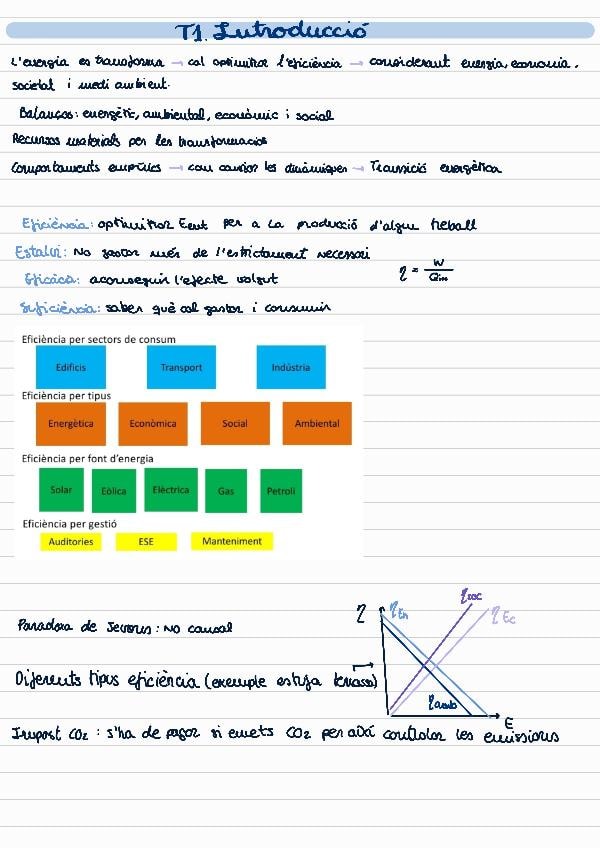 T1. Introducció
L'energia es transforma → cal optimitzar l'eficiència → considerant energia, economia,
societat i medi ambient.
Balanços: energètic, ambiental, econòmic i social
Recursos materials per les transformacions
Comportaments empírics → com canvien les dinàmiques → Transició energètica
Eficiència: optimitzar Eent per a la producció d'algun treball
Estalvi: No gastar més de l'estrictament necessari
η = W / Qin
Eficàcia: aconseguir l'efecte volgut
Suficiència: saber què cal gastar i consumir
Eficiència per sectors de consum
Edificis Transport Indústria
Eficiència per tipus
Energètica Econòmica Social Ambiental
Eficiència per font d'energia
Solar Eòlica Elèctrica Gas Petroli
Eficiència per gestió
Auditories ESE Manteniment
η ηEn ηsoc ηEc
Paradoxa de Jevons: No causal
Diferents tipus eficiència (exemple estufa terrassa)
ηamb
E
Impost CO2: s'ha de pagar si emets CO2 per així controlar les emissions